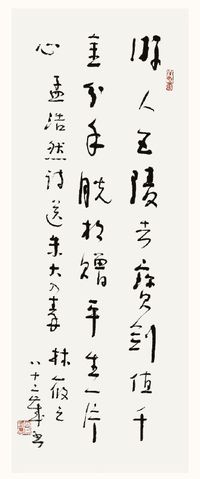 游人五陵去宝剑值千
金分手脱相赠平生一片
心 孟浩然诗送朱大入秦 林筱之
八十二岁书